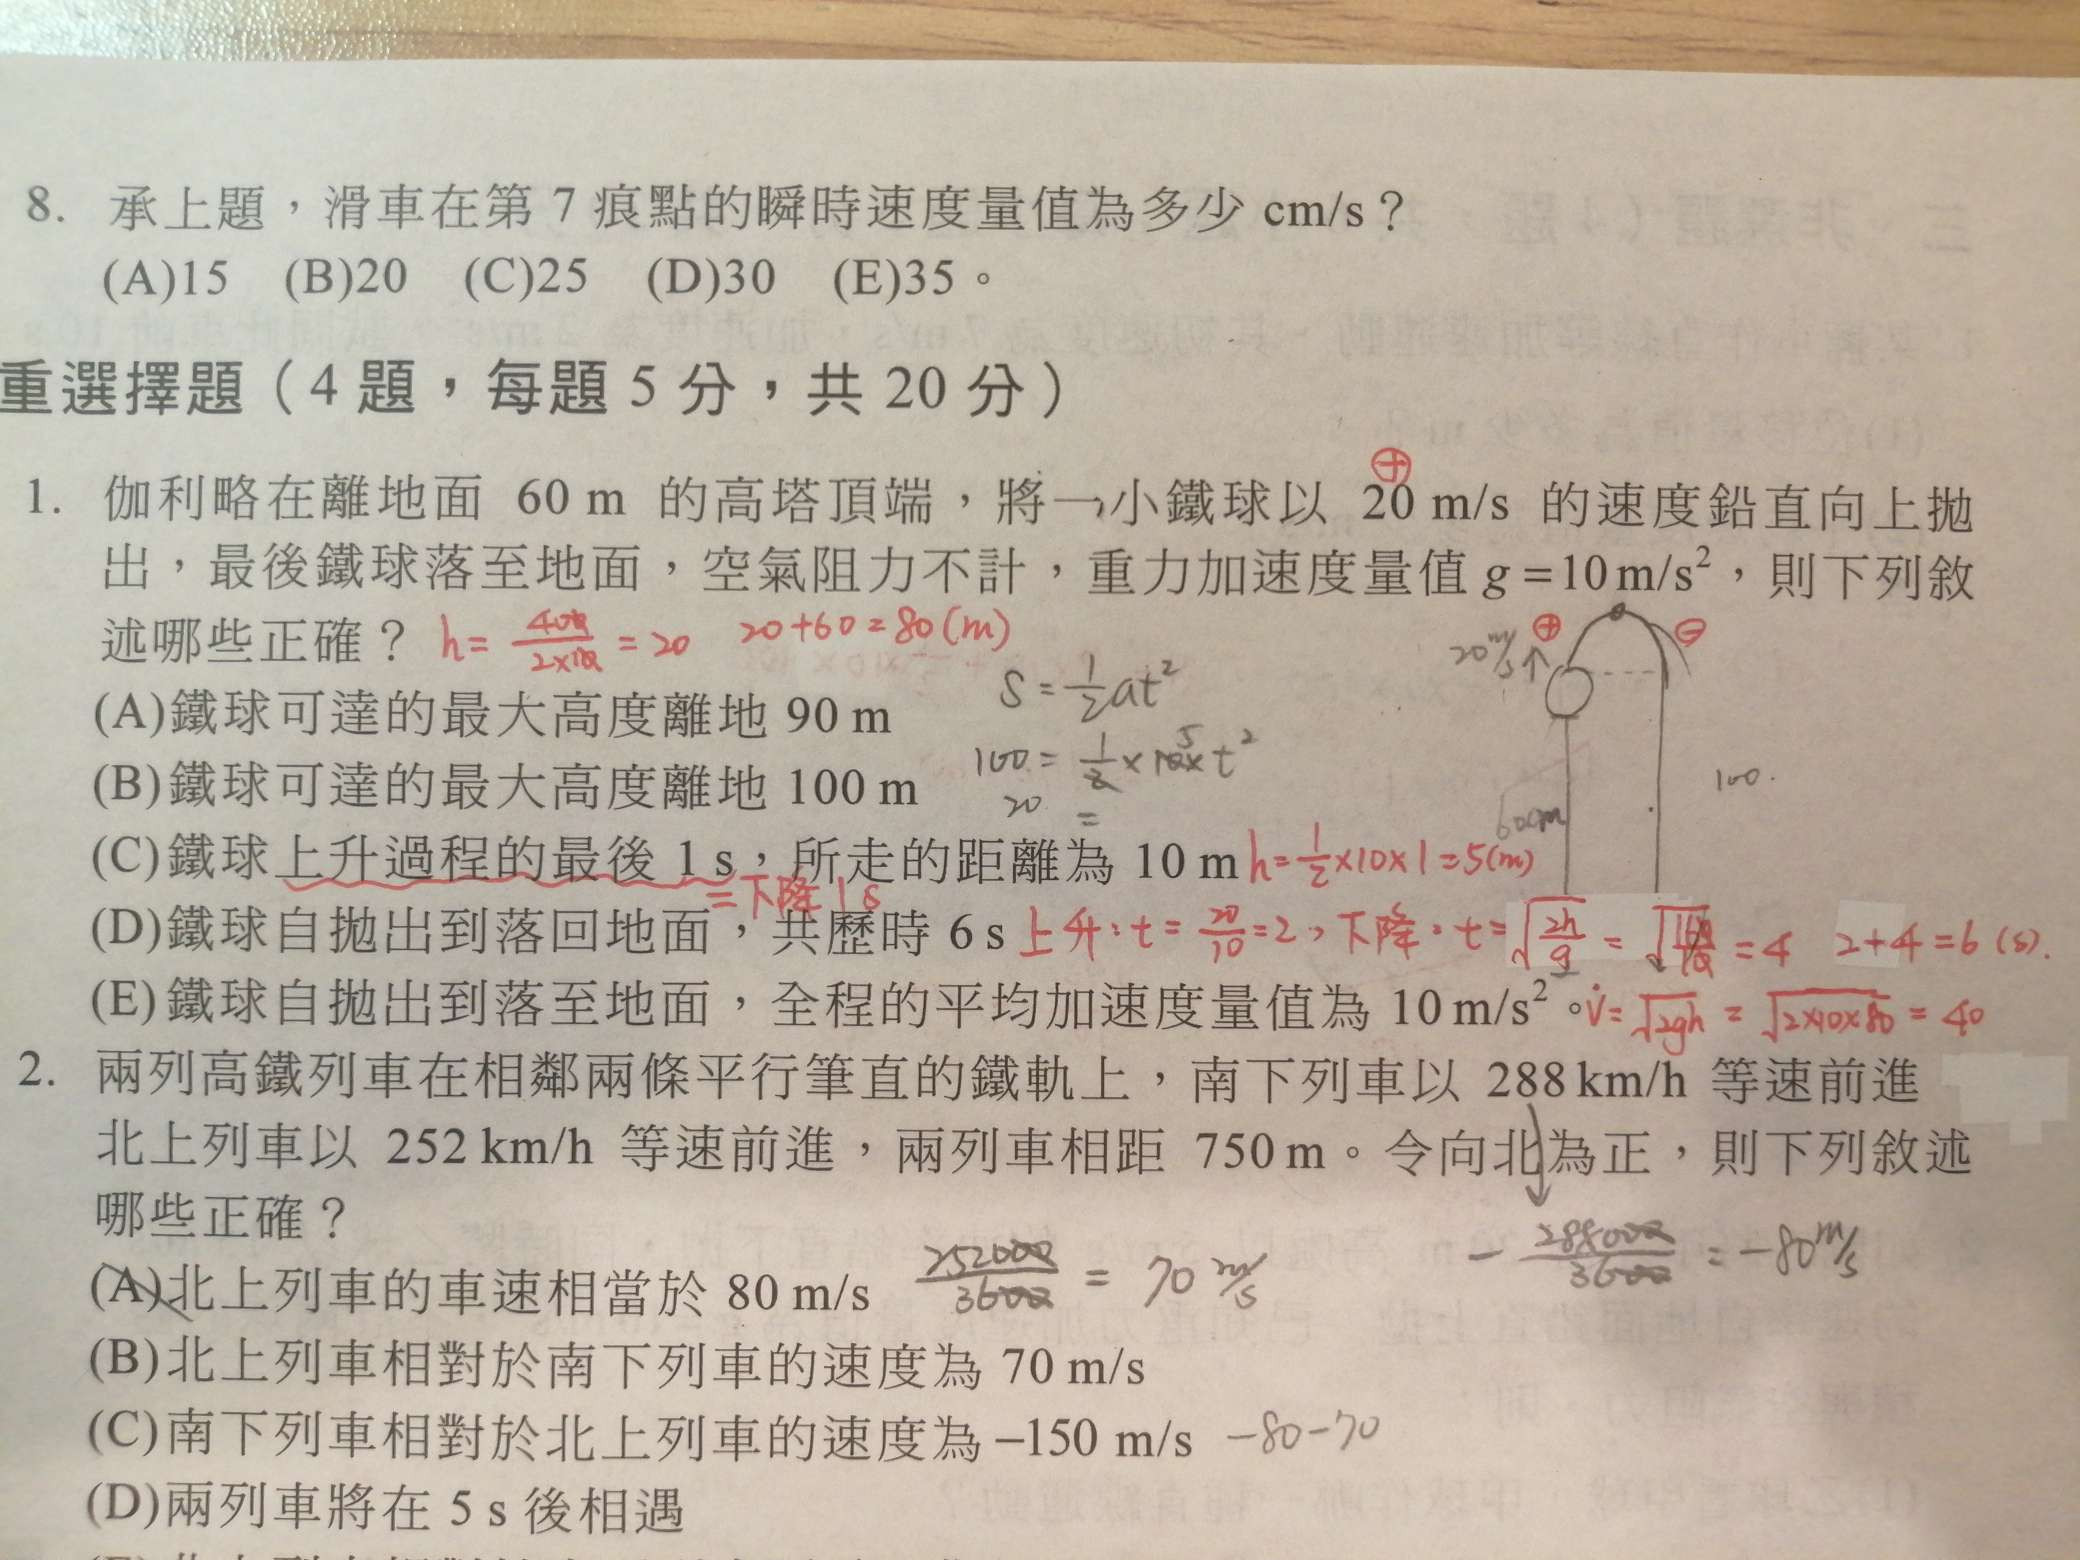 8. 承上題，滑車在第 7 痕點的瞬時速度量值為多少 cm/s？
(A)15 (B)20 (C)25 (D)30 (E)35。
重選擇題（4 題，每題 5 分，共 20 分）
⊕
1. 伽利略在離地面 60 m 的高塔頂端，將一小鐵球以 20 m/s 的速度鉛直向上拋
出，最後鐵球落至地面，空氣阻力不計，重力加速度量值 g = 10 m/s²，則下列敘
述哪些正確？ h = 400/2×10 = 20 20+60=80(m)
20 m/s ↑ ⊕ ⊖
S = 1/2 at²
(A)鐵球可達的最大高度離地 90 m
100 = 1/2 × 10 × t²
5
100.
(B)鐵球可達的最大高度離地 100 m
20 =
(C)鐵球上升過程的最後 1 s，所走的距離為 10 m h = 1/2 ×10×1=5(m)
=下降1s
(D)鐵球自拋出到落回地面，共歷時 6 s 上升：t = 20/10 = 2，下降：t = √2h/g = √160/10 = 4 2+4=6 (s).
(E)鐵球自拋出到落至地面，全程的平均加速度量值為 10 m/s²。 V = √2gh = √2×10×80 = 40
2. 兩列高鐵列車在相鄰兩條平行筆直的鐵軌上，南下列車以 288 km/h 等速前進
北上列車以 252 km/h 等速前進，兩列車相距 750 m。令向北為正，則下列敘述
哪些正確？
− 288000/3600 = −80 m/s
(A)北上列車的車速相當於 80 m/s 252000/3600 = 70 m/s
(B)北上列車相對於南下列車的速度為 70 m/s
(C)南下列車相對於北上列車的速度為 –150 m/s −80−70
(D)兩列車將在 5 s 後相遇